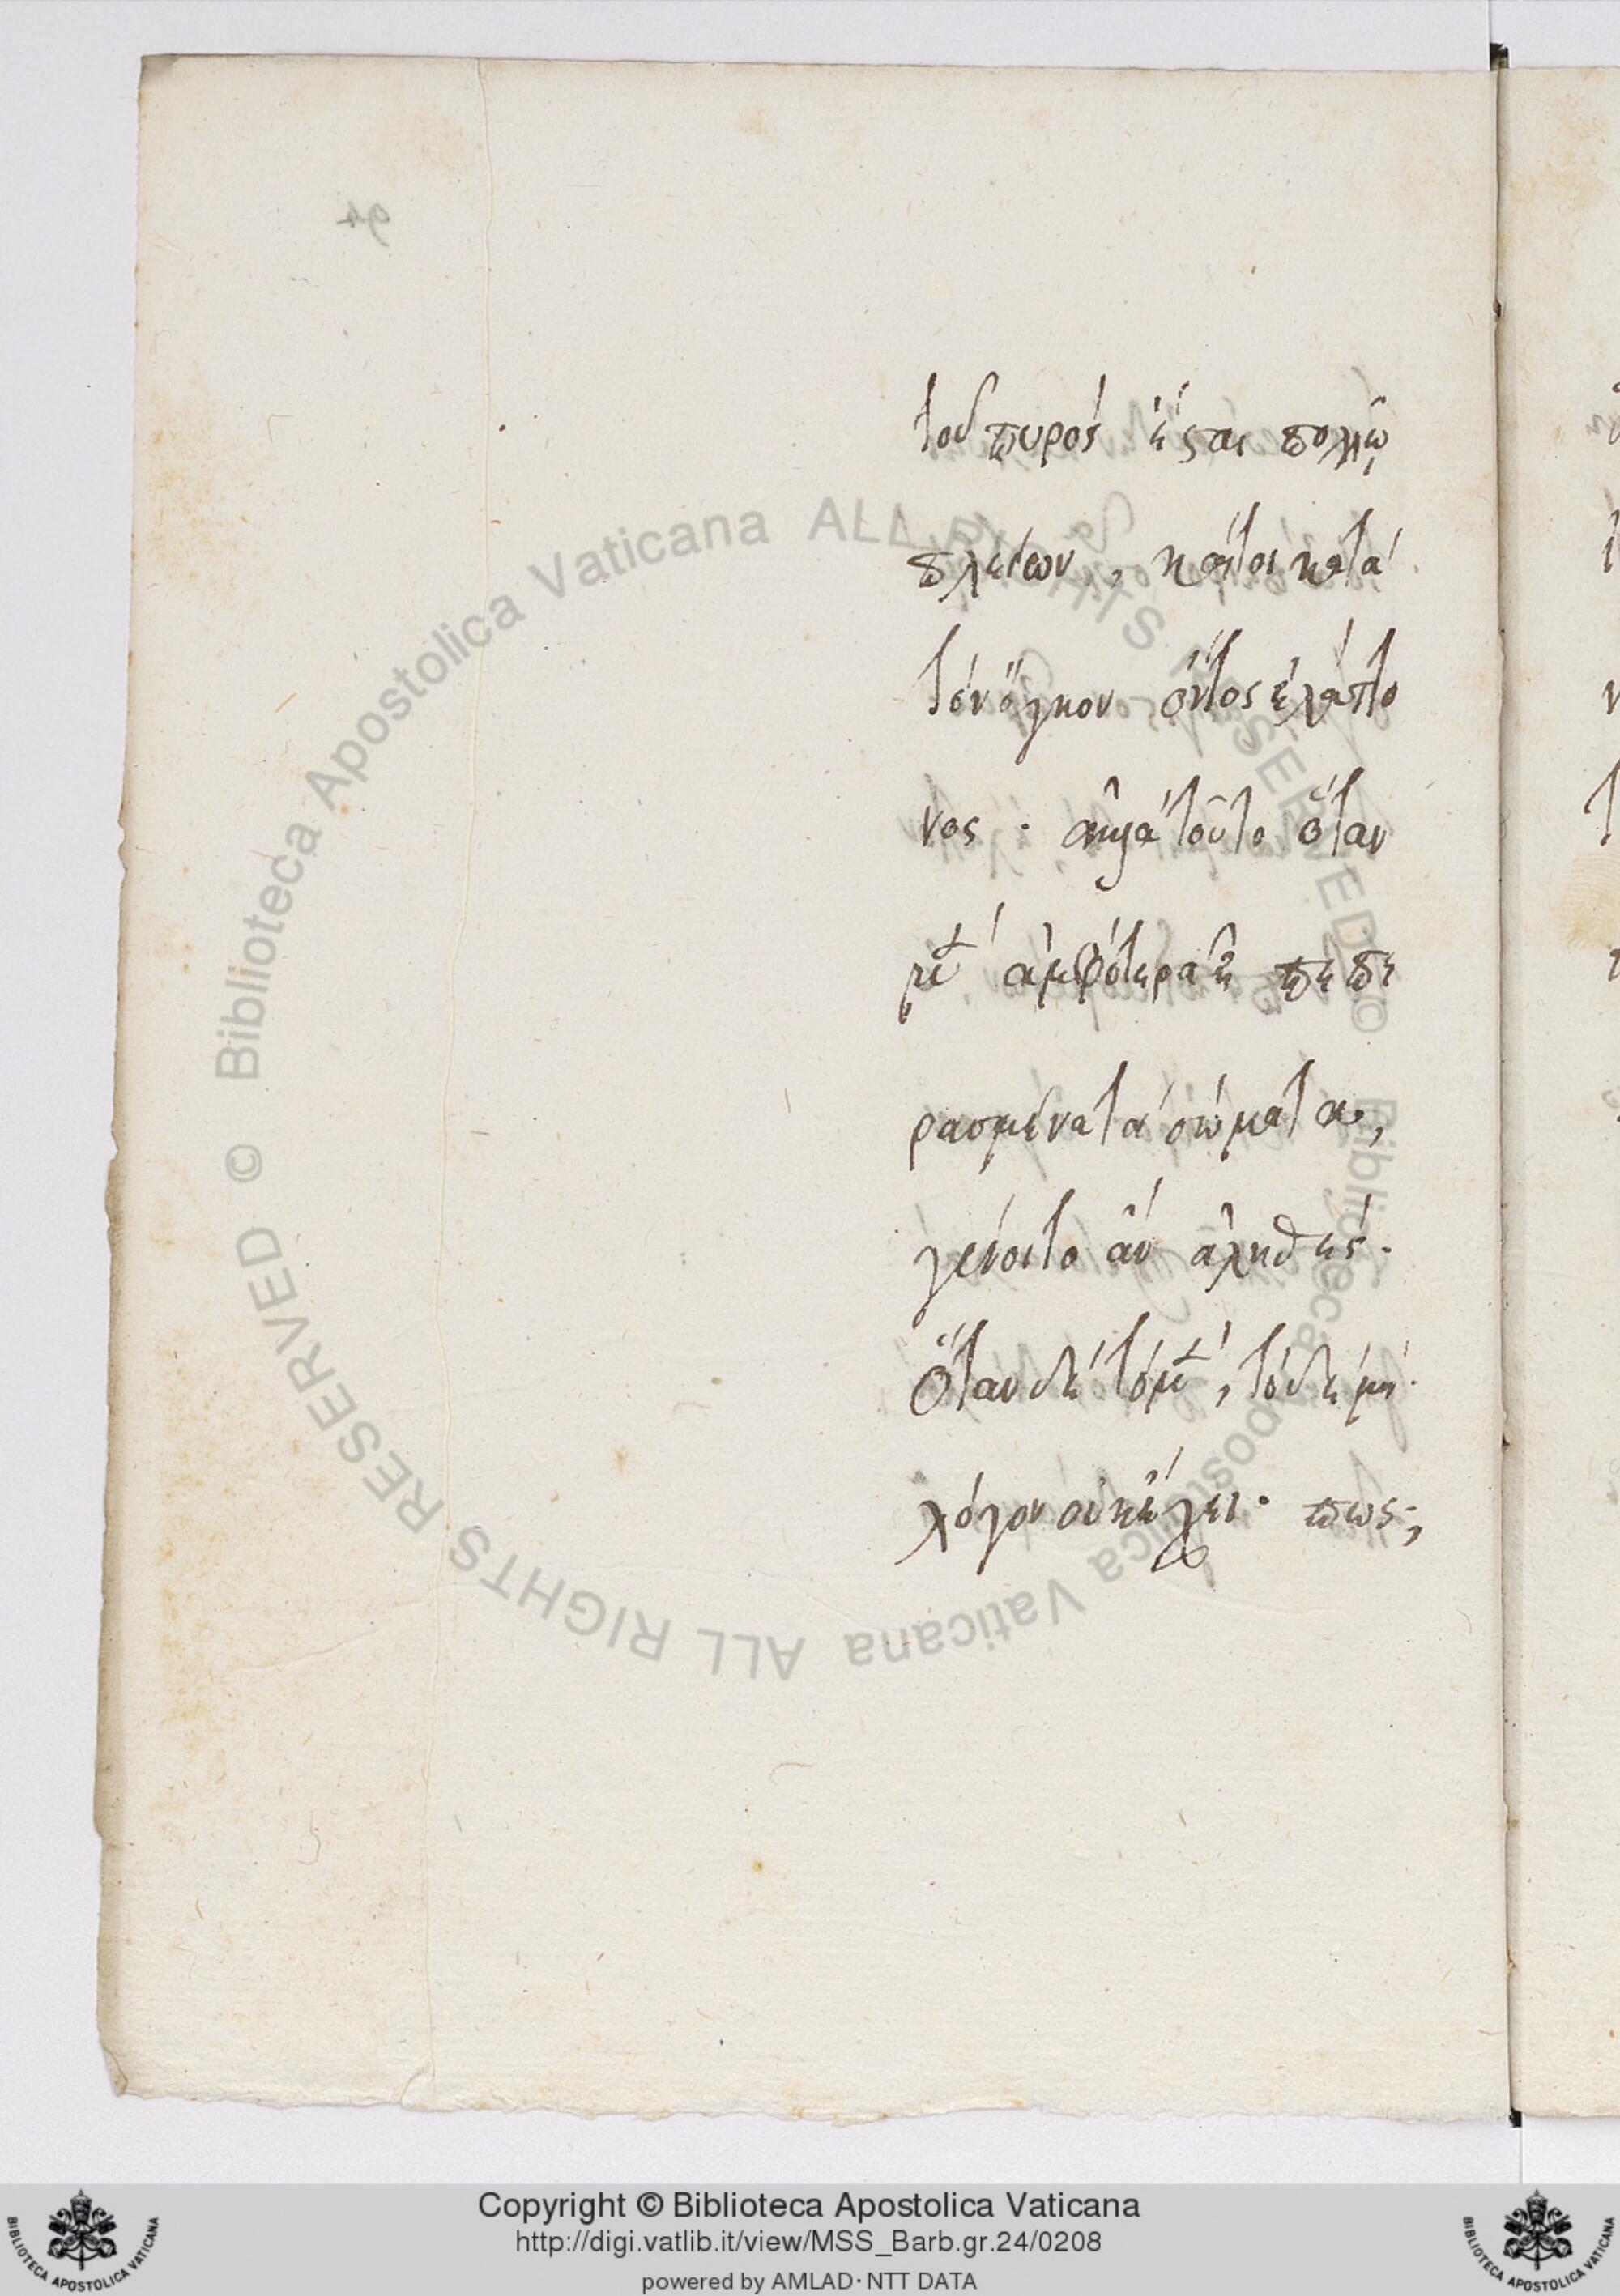 94
τοῦ πυρός ἔσται πολλῶ
πλείων, καίτοι κατά
τόν ὄγκον ὄντος ἐλάττο
νος· ἀλλὰ τοῦτο ὅταν
μέν ἀμφότερα ἦ πεπε
ρασμένα τὰ σώματα,
γένοιτο ἄν ἀληθές.
Ὅταν δέ τό μέν, τό δέ μή.
λόγον οὐκ ἔχει. πως;
Biblioteca Apostolica Vaticana ALL RIGHTS RESERVED ©
Biblioteca Apostolica Vaticana ALL RIGHTS RESERVED ©
Copyright © Biblioteca Apostolica Vaticana
http://digi.vatlib.it/view/MSS_Barb.gr.24/0208
powered by AMLAD·NTT DATA
BIBLIOTECA APOSTOLICA VATICANA
BIBLIOTECA APOSTOLICA VATICANA